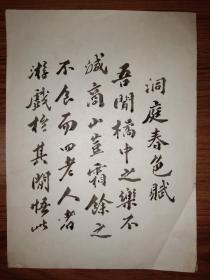 洞庭春色賦
吾聞橘中之樂不
減商山豈霜餘之
不食而四老人者
游戲於其間悟此